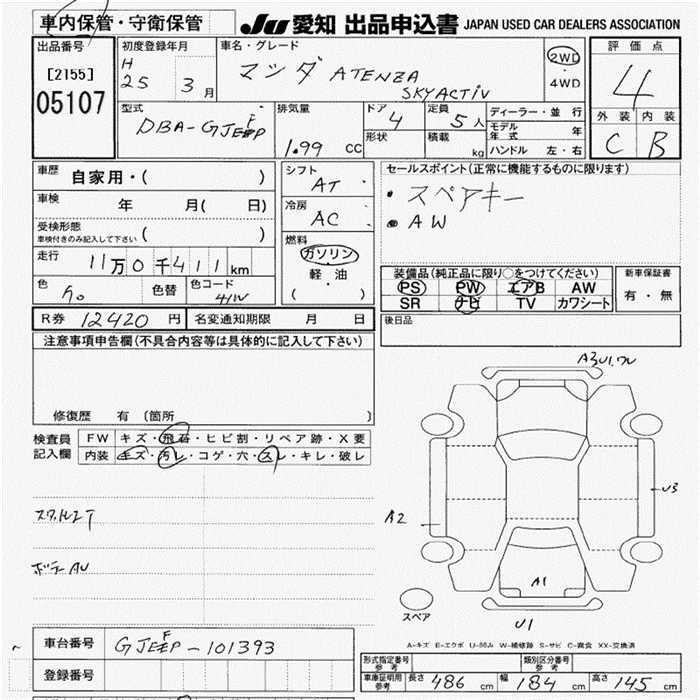 車内保管・守衛保管 JU 愛知 出品申込書 JAPAN USED CAR DEALERS ASSOCIATION
出品番号
[2155]
05107
初度登録年月
H
25 3月
車名・グレード
マツダ ATENZA
SKYACTIV
2WD
・
4WD
評価点
4
外装 内装
C B
型式
DBA-GJEFP
排気量
1.99 CC
ドア
4
形状
定員
5人
積載
kg
ディーラー・並行
モデル年式 年
ハンドル 左・右
車歴 自家用・( )
車検 年 月( 日)
受検形態
車検付きのみ記入して下さい ( )
走行 11万0千411km
色
色替
色コード
41W
シフト
AT
冷房
AC
燃料
ガソリン
・
軽・油
( )
セールスポイント(正常に機能するものに限ります)
・スペアキー
・AW
装備品(純正品に限り○をつけてください)
PS PW エアB AW
SR ナビ TV カワシート
新車保証書
有・無
R券 12420円 名変通知期限 月 日
後日品
注意事項申告欄(不具合内容等は具体的に記入して下さい)
修復歴 有 〔箇所 〕
検査員
記入欄
FW キズ・飛石・ヒビ割・リペア跡・X要
内装 キズ・汚レ・コゲ・穴・スレ・キレ・破レ
ボデーAU
A3U1.ワレ
U3
A2
A1
U1
スペア
A-キズ E-エクボ U-凹み W-補修跡 S-サビ C-腐食 XX-交換済
車台番号 GJEFP-101393
登録番号
形式指定番号
参考
類別区分番号
参考
車庫証明用
参考
長さ 486cm 幅 184cm 高さ 145cm